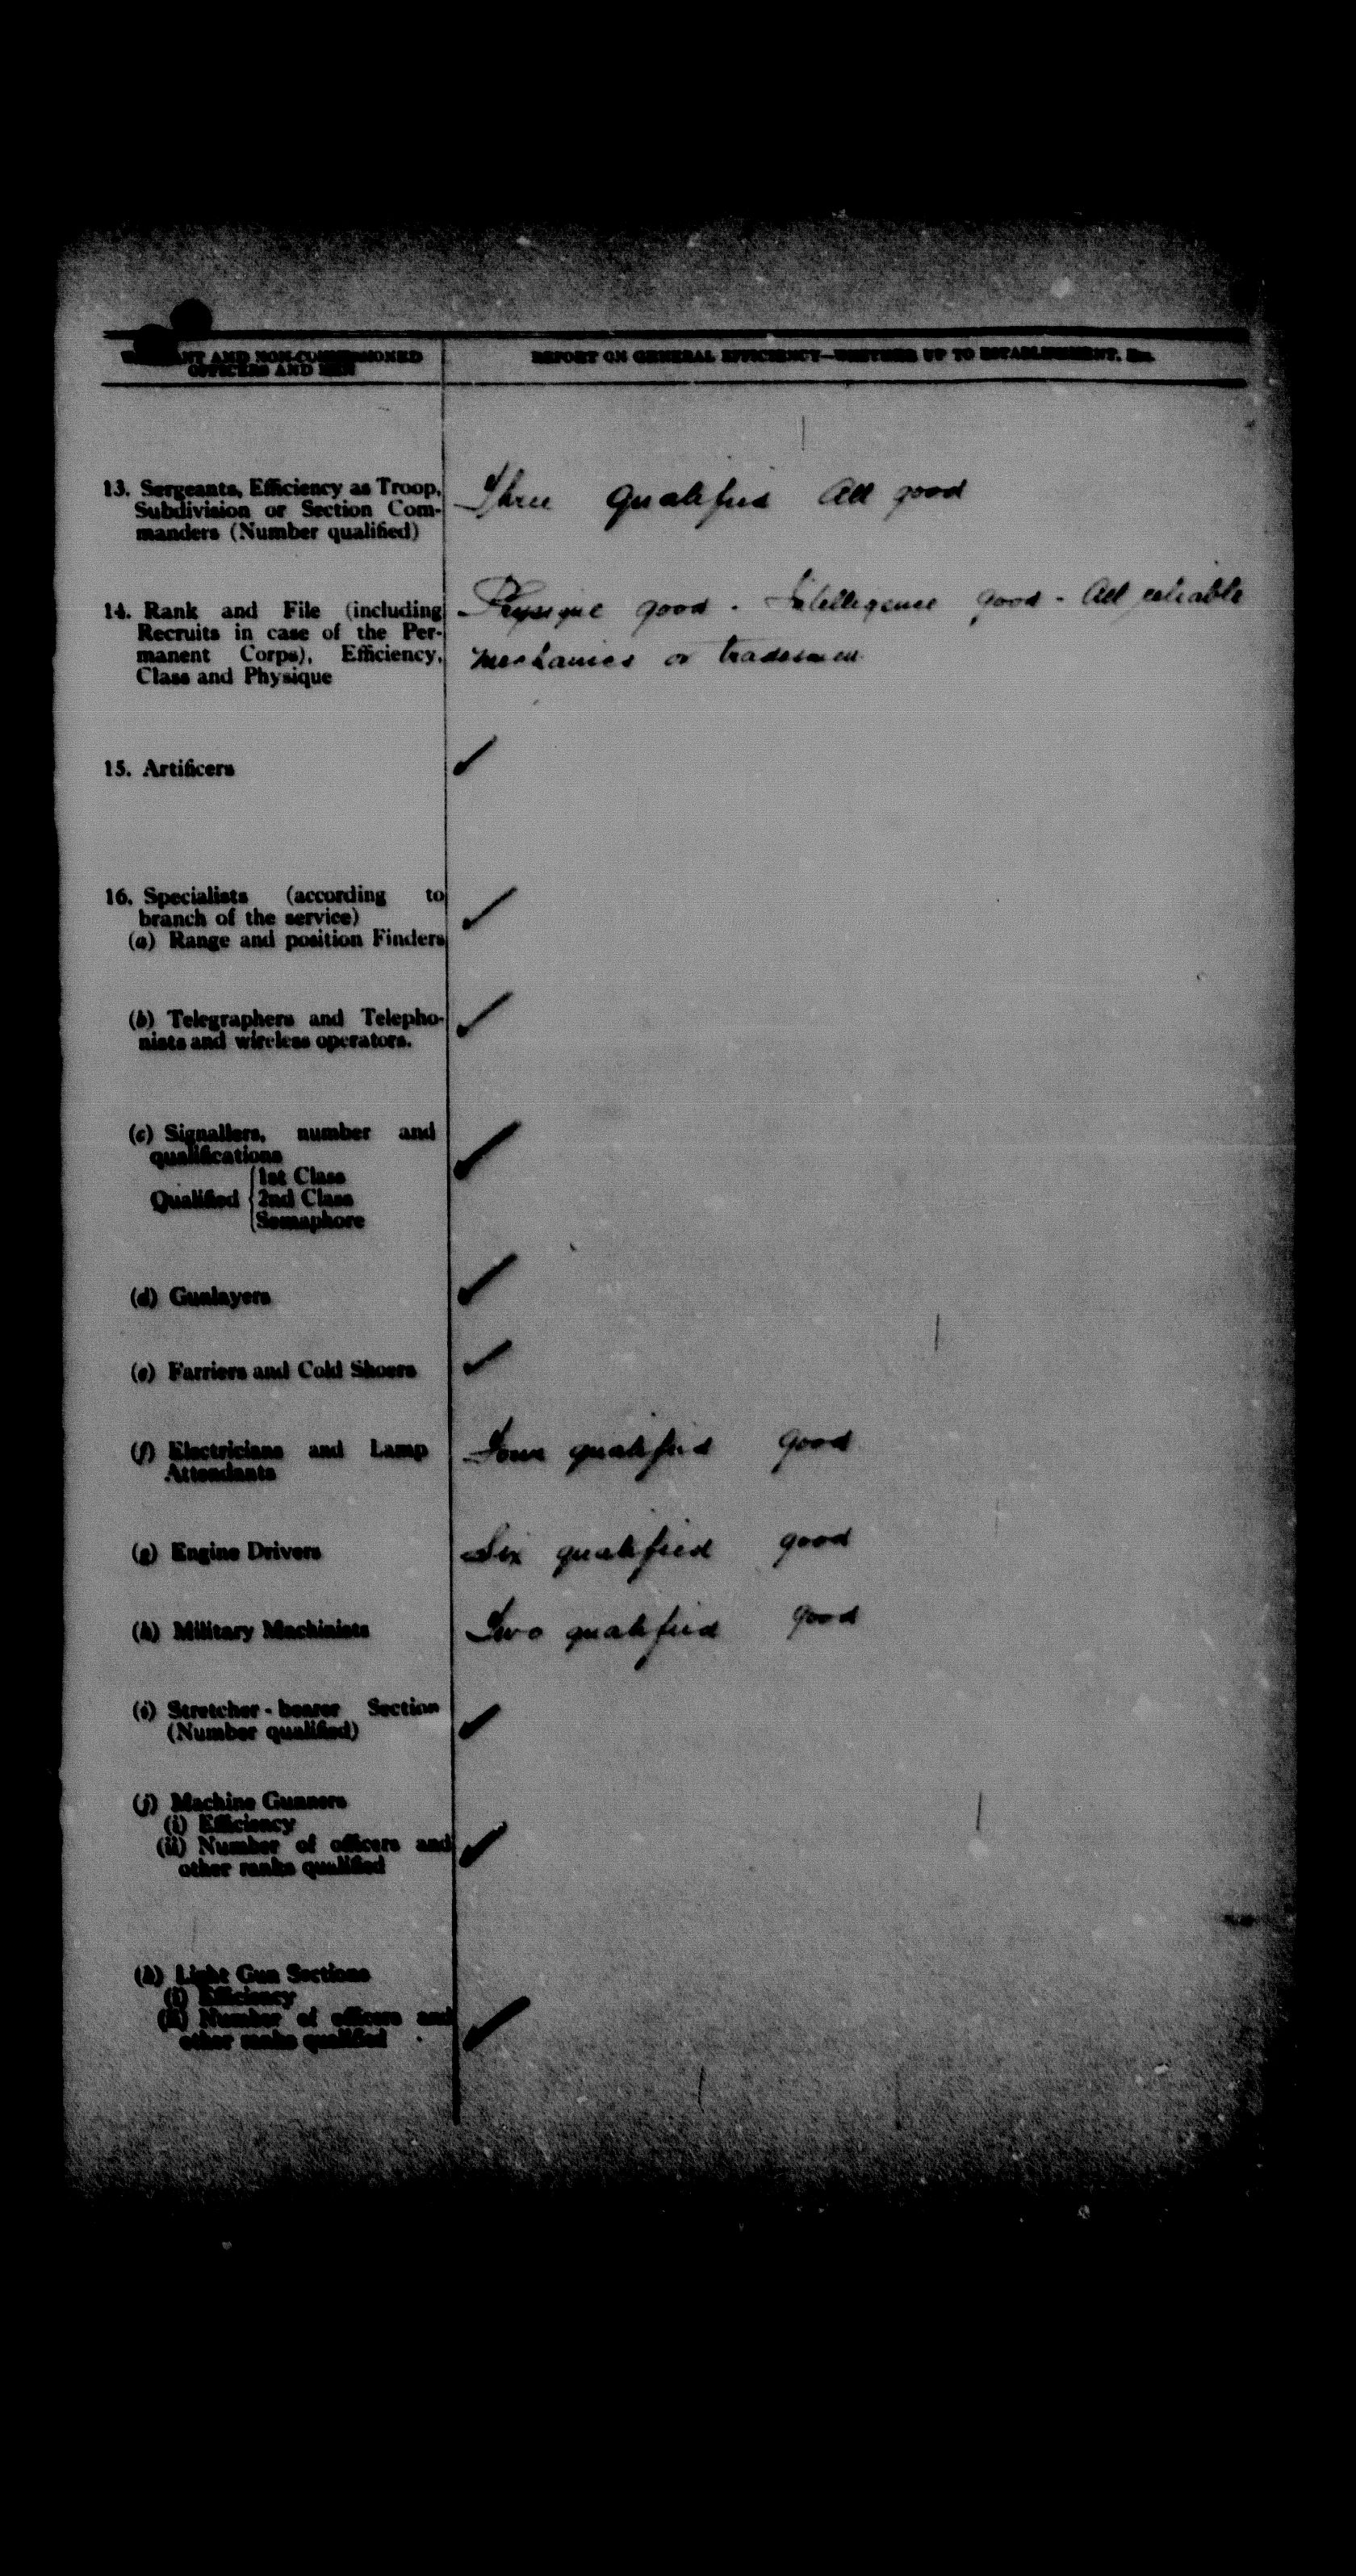 WARRANT AND NON-COMMISSIONED
OFFICERS AND MEN
REPORT ON GENERAL EFFICIENCY—WHETHER UP TO ESTABLISHMENT, &c.
13. Sergeants, Efficiency as Troop,
Subdivision or Section Com-
manders (Number qualified)
Three qualified All good
14. Rank and File (including
Recruits in case of the Per-
manent Corps), Efficiency,
Class and Physique
Physique good . Intelligence good - All reliable
mechanics or tradesmen
15. Artificers
✓
16. Specialists (according to
branch of the service)
(a) Range and position Finders
✓
(b) Telegraphers and Telepho-
nists and wireless operators.
✓
(c) Signallers, number and
qualifications
Qualified { 1st Class
2nd Class
Semaphore
✓
(d) Gunlayers
✓
(e) Farriers and Cold Shoers
✓
(f) Electricians and Lamp
Attendants
Four qualified good
(g) Engine Drivers
Six qualified good
(h) Military Machinists
Two qualified good
(i) Stretcher-bearer Section
(Number qualified)
✓
(j) Machine Gunners
(i) Efficiency
(ii) Number of officers and
other ranks qualified
✓
(k) Light Gun Sections
(i) Efficiency
(ii) Number of officers and
other ranks qualified
✓